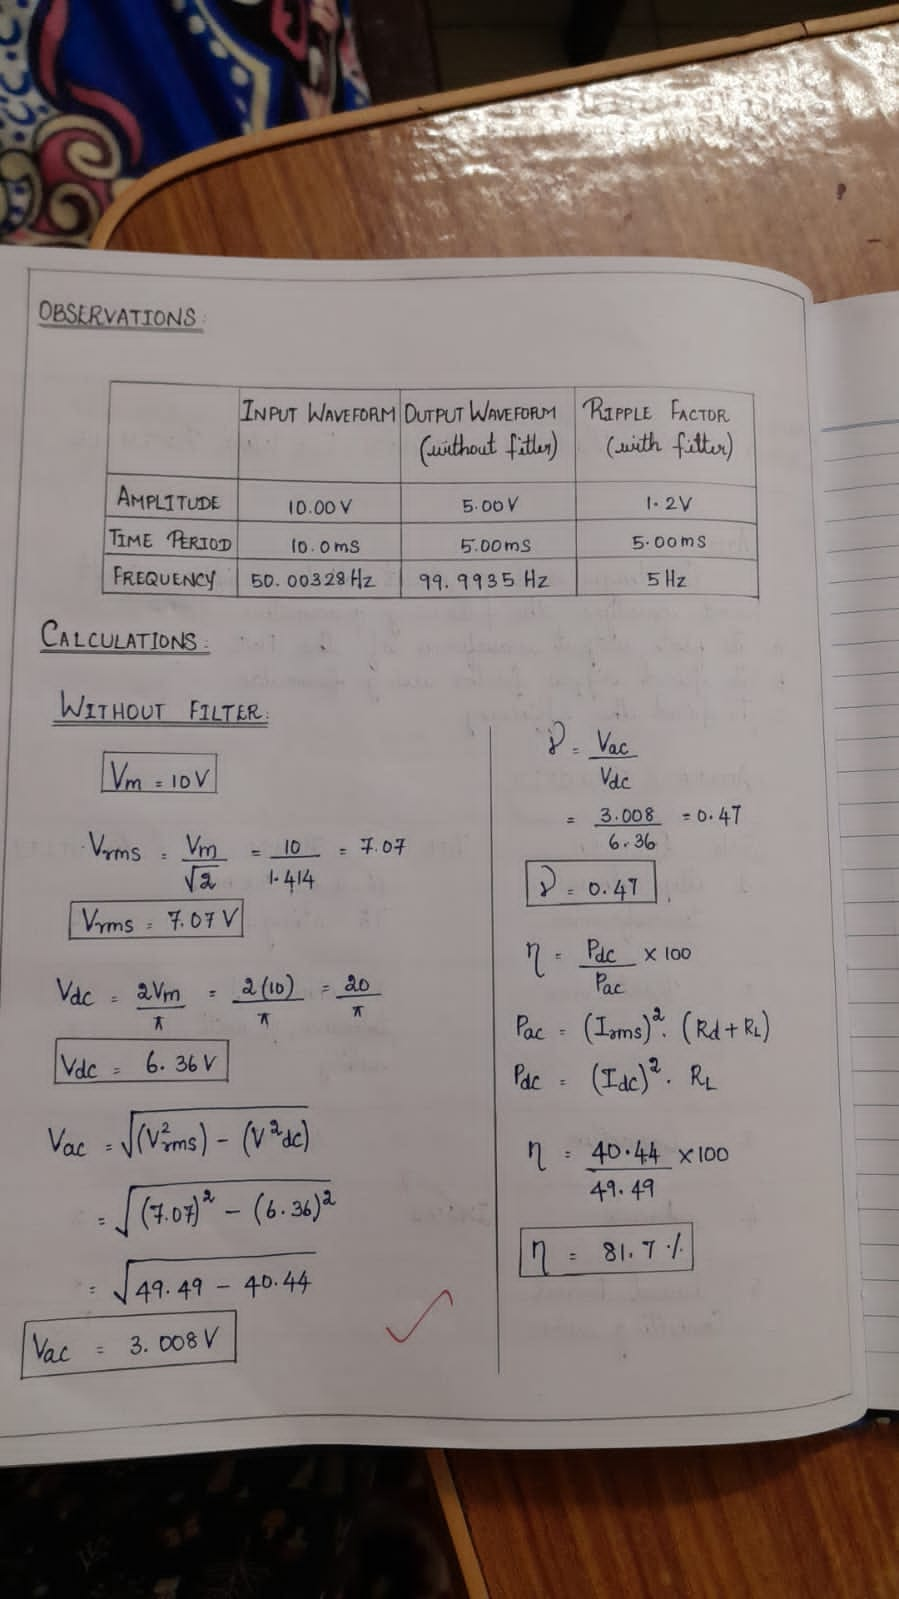 OBSERVATIONS:
INPUT WAVEFORM OUTPUT WAVEFORM (without fitler) RIPPLE FACTOR (with filter)
AMPLITUDE 10.00 V 5.00 V 1.2V
TIME PERIOD 10.0ms 5.00ms 5.00ms
FREQUENCY 50.00328 Hz 99.9935 Hz 5 Hz
CALCULATIONS:
WITHOUT FILTER:
Vm = 10V
Vrms = Vm/√2 = 10/1.414 = 7.07
Vrms = 7.07 V
Vdc = 2Vm/π = 2(10)/π = 20/π
Vdc = 6.36 V
Vac = √(V²rms) - (V²dc)
= √(7.07)² - (6.36)²
= √49.49 - 40.44
Vac = 3.008 V
γ = Vac/Vdc
= 3.008/6.36 = 0.47
γ = 0.47
η = Pdc/Pac × 100
Pac = (Irms)². (Rd + RL)
Pdc = (Idc)². RL
η = 40.44/49.49 × 100
η = 81.7 %